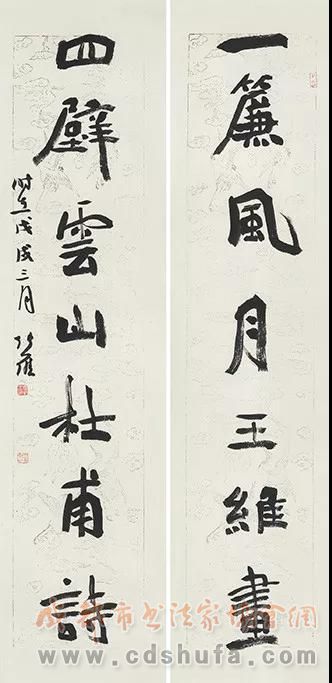 一簾風月王維畫
四壁雲山杜甫詩
時在戊戌三月
成都市书法家协会网
www.cdshufa.com